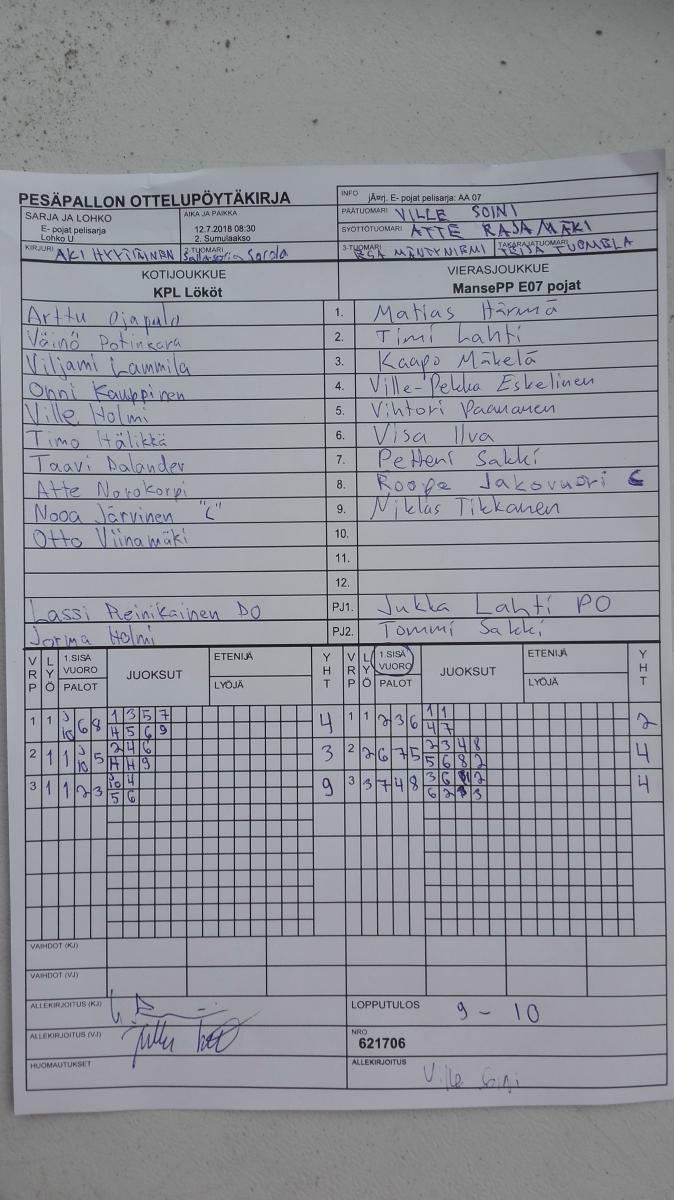 PESÄPALLON OTTELUPÖYTÄKIRJA
INFO jÃ¤rj. E- pojat pelisarja: AA 07
SARJA JA LOHKO
E- pojat pelisarja
Lohko U
AIKA JA PAIKKA
12.7.2018 08:30
2. Sumulaakso
PÄÄTUOMARI VILLE SOINI
SYÖTTÖTUOMARI ATTE RAJAMÄKI
KIRJURI AKI
2-TUOMARI Sorola
3-TUOMARI ESA MÄNTYNIEMI
TAKARAJATUOMARI TEIJA TUOMELA
KOTIJOUKKUE
KPL Lököt
VIERASJOUKKUE
MansePP E07 pojat
Arttu Ojapalo 1. Matias Härmä
Väinö Potinkara 2. Timi Lahti
Viljami Lammila 3. Kaapo Mäkelä
Onni Kauppinen 4. Ville-Pekka Eskelinen
Ville Holmi 5. Vihtori Paananen
Timo Hälikkä 6. Visa Ilva
Taavi Dalander 7. Petteri Sakki
Atte Norokorpi 8. Roope Jakovuori C
Nooa Järvinen "C" 9. Niklas Tikkanen
Otto Viinamäki 10.
11.
12.
Lassi Reinikainen PO PJ1. Jukka Lahti PO
Jorma Holmi PJ2. Tommi Sakki
VRP LYÖ 1.SISÄ VUORO PALOT JUOKSUT ETENIJÄ LYÖJÄ YHT VRP LYÖ 1.SISÄ VUORO PALOT JUOKSUT ETENIJÄ LYÖJÄ YHT
1 1 10 6 8 1 3 5 7 4 1 1 2 3 6 1 1 2
4 5 6 9 4 7
2 1 1 10 5 2 4 6 3 2 2 6 7 5 2 3 4 8 4
4 4 9 5 6 8 2
3 1 1 2 3 10 4 9 3 3 7 4 8 3 6 2 4
5 6 6 2 3
VAIHDOT (KJ)
VAIHDOT (VJ)
ALLEKIRJOITUS (KJ)
LOPPUTULOS 9 - 10
ALLEKIRJOITUS (VJ)
NRO
621706
HUOMAUTUKSET
ALLEKIRJOITUS Ville Soini